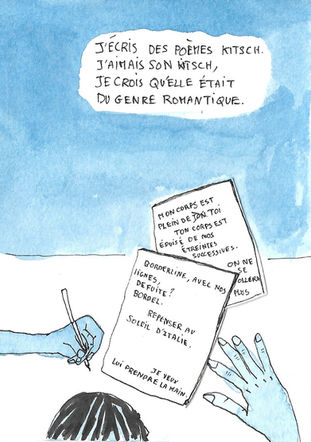 J'ÉCRIS DES POÈMES KITSCH.
J'AIMAIS SON KITSCH,
JE CROIS QU'ELLE ÉTAIT
DU GENRE ROMANTIQUE.
MON CORPS EST
PLEIN DE TOI
TON CORPS EST
ÉPUISÉ DE NOS
ÉTREINTES
SUCCESSIVES.
ON NE
SE
COLLERA
PLUS
BORDERLINE, AVEC NOS
LIGNES,
DE FUITE?
BORDEL.
REPENSER AU
SOLEIL D'ITALIE.
JE VEUX
LUI PRENDRE LA MAIN.